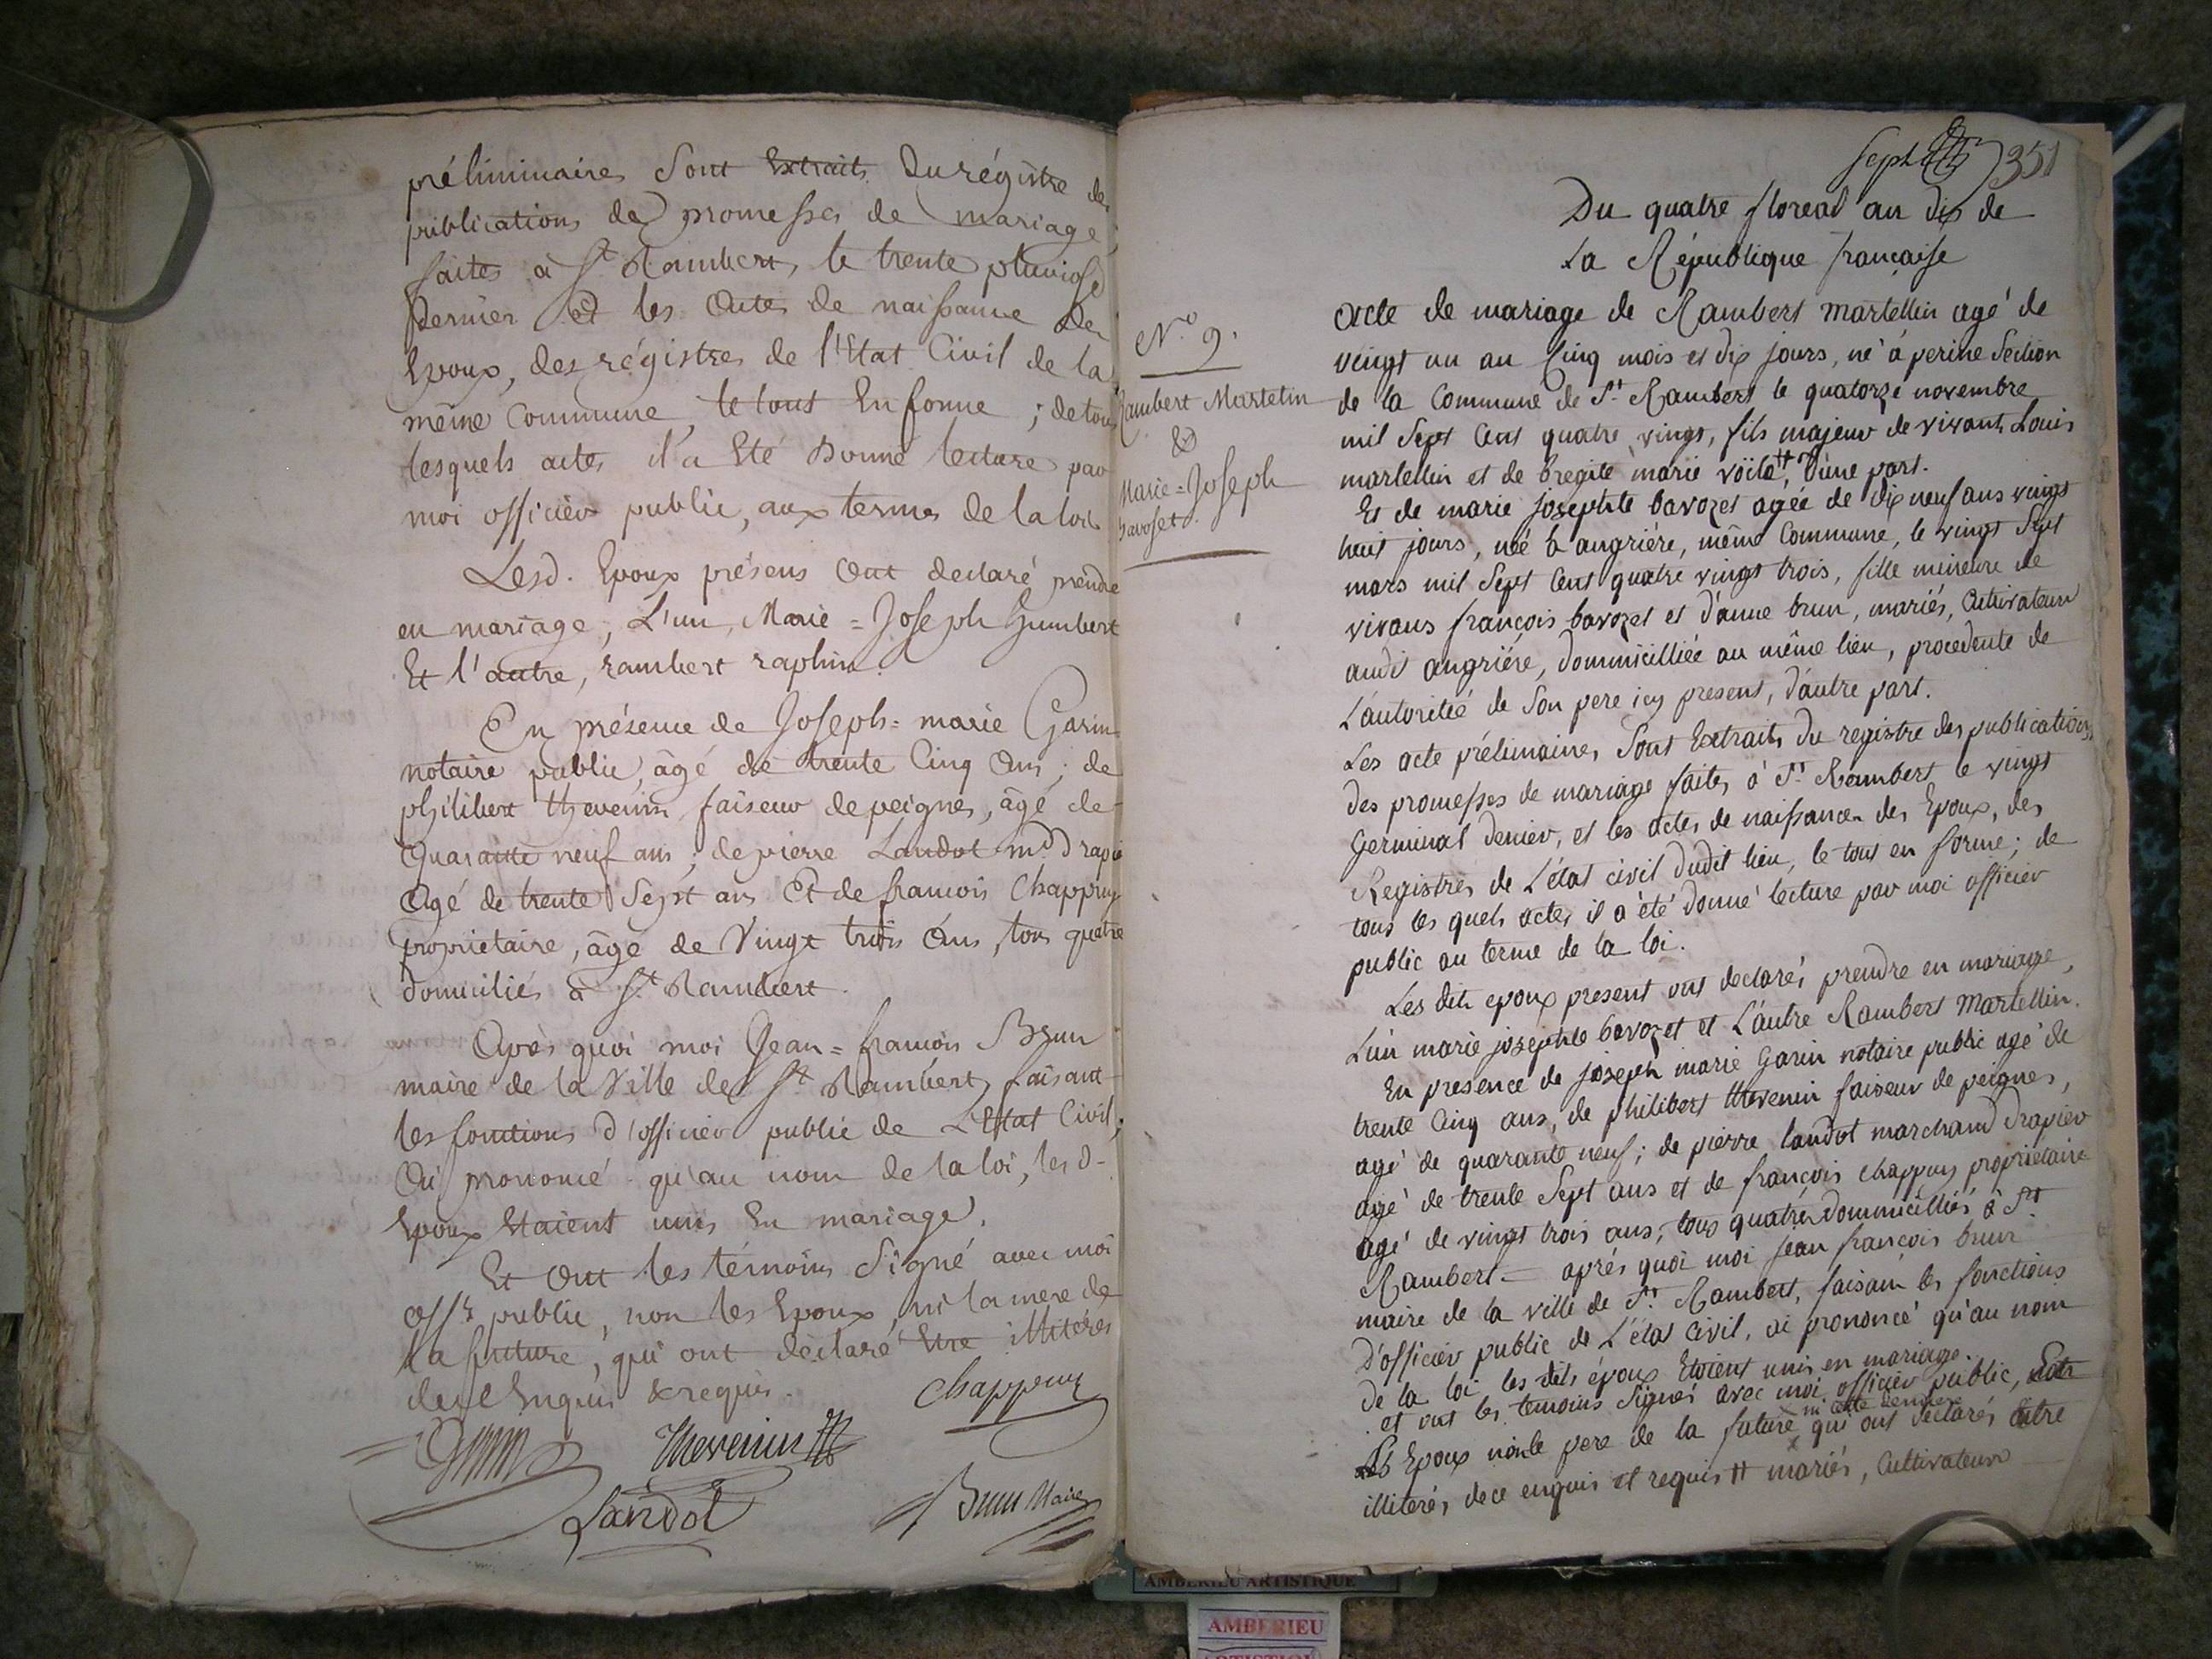 préliminaires Sont Extraits Du régistre des
publications de promesses de mariage,
faites à St. Rambert, le trente pluviose
Dernier Et les Actes de naissance des
Epoux, des régistres de l'Etat Civil de la
même Commune, le tout En forme ; de tous
lesquels actes il a Eté Donné lecture par
moi officier public, aux termes de la loi.
Lesd. Epoux présens Ont declaré prendre
en mariage, L'un, Marie = Joseph Gumbert
Et l'autre, rambert raphin.
En présence de Joseph = marie Garin
notaire public, âgé de trente Cinq Ans ; de
philibert thevenin faiseur de peignes, âgé de
Quarante neuf ans ; de pierre Landot md. drapier
Agé de trente Sept ans Et de francois Chappuy
proprietaire, âgé de Vingt trois Ans, tous quatre
domiciliés à St. Rambert.
Après quoi moi Jean = francois Brun
maire de la Ville de St. Rambert, faisant
les fonctions d'officier public de L'Etat Civil,
Ai prononcé qu'au nom de la loi, les d.
Epoux Etaient unis En mariage.
Et Ont les témoins Signé avec moi
offr. public, non les Epoux, ni la mere de
la future, qui ont déclaré Etre illiterés
de ce Enquis & requis.
Chappuy
Garin Thevenin
Landot Brun Maire
351
Du quatre floreal an dix de
La République française
N.o 9.
Rambert Martelin
&
Marie = Joseph
Bavoset.
acte de mariage de Rambert martellin agé de
vingt un an Cinq mois et dix jours, né à perine Section
de la Commune de St. Rambert le quatorze novembre
mil Sept Cent quatre vingt, fils majeur de vivants Louis
martellin et de bregite marie voïle #, d'une part.
Et de marie josephte bavozet agée de dix neuf ans vingt
huit jours, née à angriére, même Commune, le vingt Sept
mars mil Sept Cent quatre vingt trois, fille mineure de
vivans francois bavozet et d'anne brun, mariés, Cultivateurs
audit angriére, dommicilliée au même lieu, procedente de
L'autoritée de Son pere icy present, d'autre part.
Les acte prélimaires Sont Extraits du registre des publications
des promesses de mariage faites à St. Rambert le vingt
Germinal dernier, et les actes de naissances des Epoux, des
Registres de L'état civil dudit lieu, le tout en forme ; de
tous les quels actes il a été donné lecture par moi officier
public au terme de la loi.
Les dits epoux present ont declarés prendre en mariage,
L'un marie josephte bavozet et L'autre Rambert Martellin.
En presence de joseph marie Garin notaire public agé de
trente Cinq ans, de philibert thevenin faiseur de peignes,
agé de quarante neuf ; de pierre landot marchand drapier
agé de trente Sept ans et de francois chappuy propriétaire
agé de vingt trois ans, tous quatre dommicilliés à St.
Rambert — aprés quoi moi jean francois brun
maire de la ville de St. Rambert, faisant les fonctions
d'officier public de L'état Civil, ai prononcé qu'au nom
de la loi les dits époux Etoient unis en mariage.
et ont les temoins Signés avec moi officier public,
Les Epoux ni le pere de la future qui ont declarés être
illiterés, de ce enquis et requis # mariés, Cultivateurs
AMBERIEU ARTISTIQUE
AMBERIEU
ARTISTIQUE